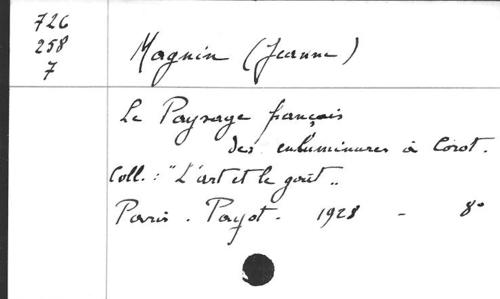 726
258
7
Magnin (Jeanne)
Le Paysage français
des enluminures à Corot.
Coll. : "L'art et le goût"
Paris. Payot. 1928 - 8°